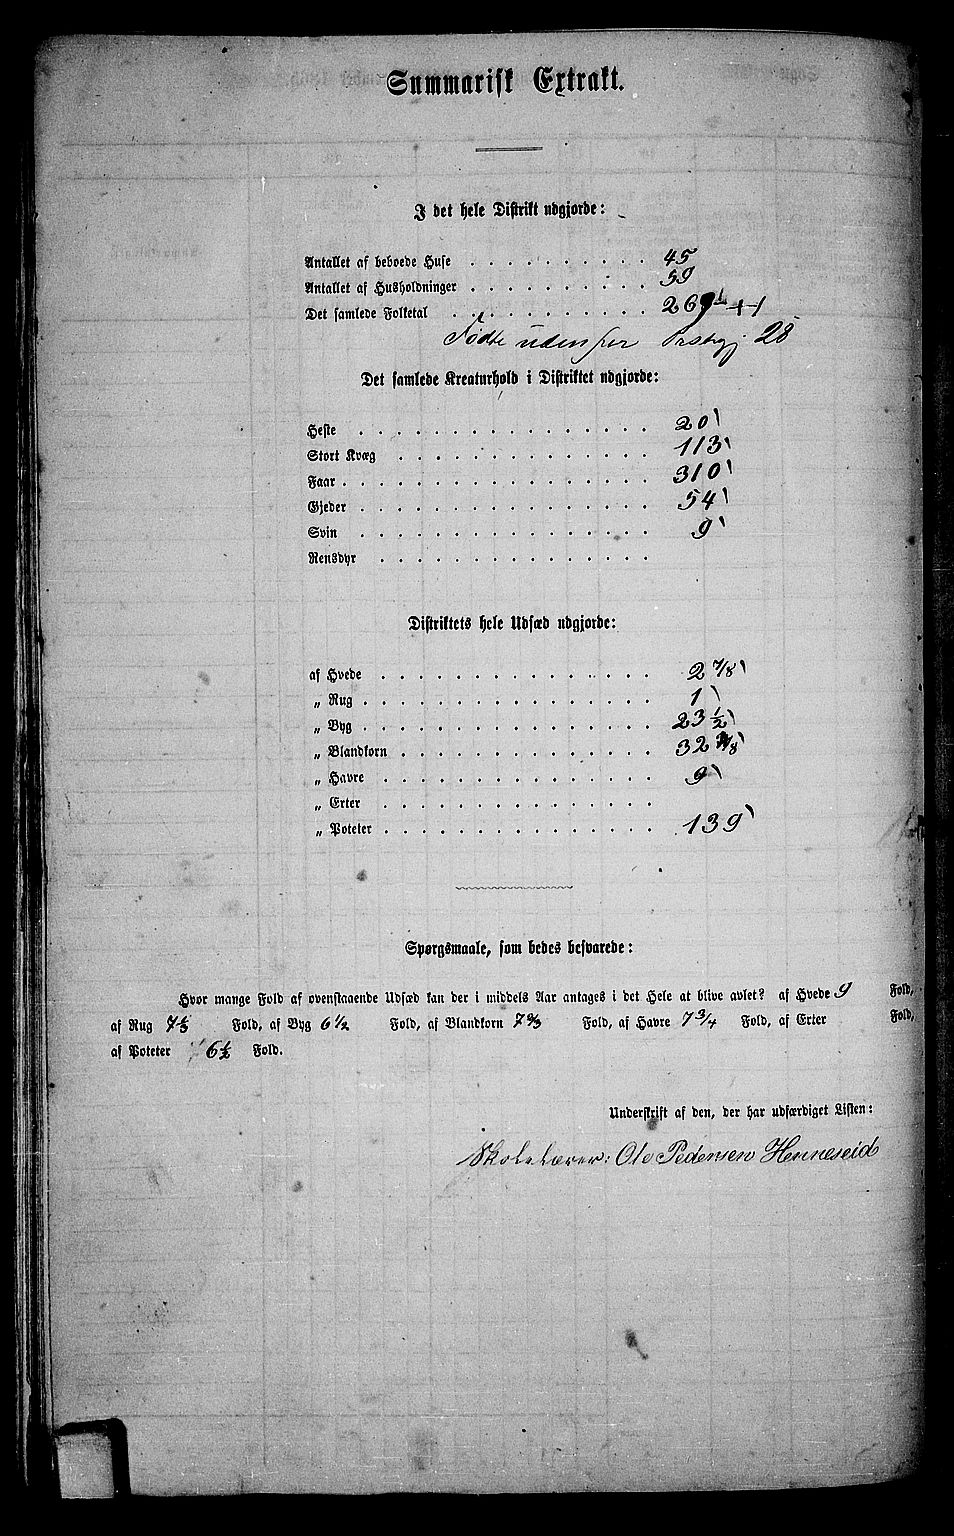 Summarisk Extrakt.
I det hele Distrikt udgjorde:
Antallet af beboede Huse . . . . . . . . . . 45
Antallet af Husholdninger . . . . . . . . . . 59
Det samlede Folketal . . . . . . . . . . 269
Fødte udenfor Præstegj. 28
Det samlede Kreaturhold i Distriktet udgjorde:
Heste . . . . . . . . . . 20
Stort Kvæg . . . . . . . . . . 113
Faar . . . . . . . . . . 310
Gjeder . . . . . . . . . . 54
Svin . . . . . . . . . . 9
Rensdyr . . . . . . . . . .
Distriktets hele Udsæd udgjorde:
af Hvede . . . . . . . . . . 2 7/8
„ Rug . . . . . . . . . . 1
„ Byg . . . . . . . . . . 23 1/2
„ Blandkorn . . . . . . . . . . 32 /8
„ Havre . . . . . . . . . . 9
„ Erter . . . . . . . . . .
„ Poteter . . . . . . . . . . 139
Spørgsmaale, som bedes besvarede:
Hvor mange Fold af ovenstaaende Udsæd kan der i middels Aar antages i det Hele at blive avlet? af Hvede 9 Fold,
af Rug 7 Fold, af Byg 6 1/2 Fold, af Blandkorn 7 Fold, af Havre 7 3/4 Fold, af Erter Fold,
af Poteter 6 1/2 Fold.
Underskrift af den, der har udfærdiget Listen:
Skolelærer: Ole Pedersen Henneseid